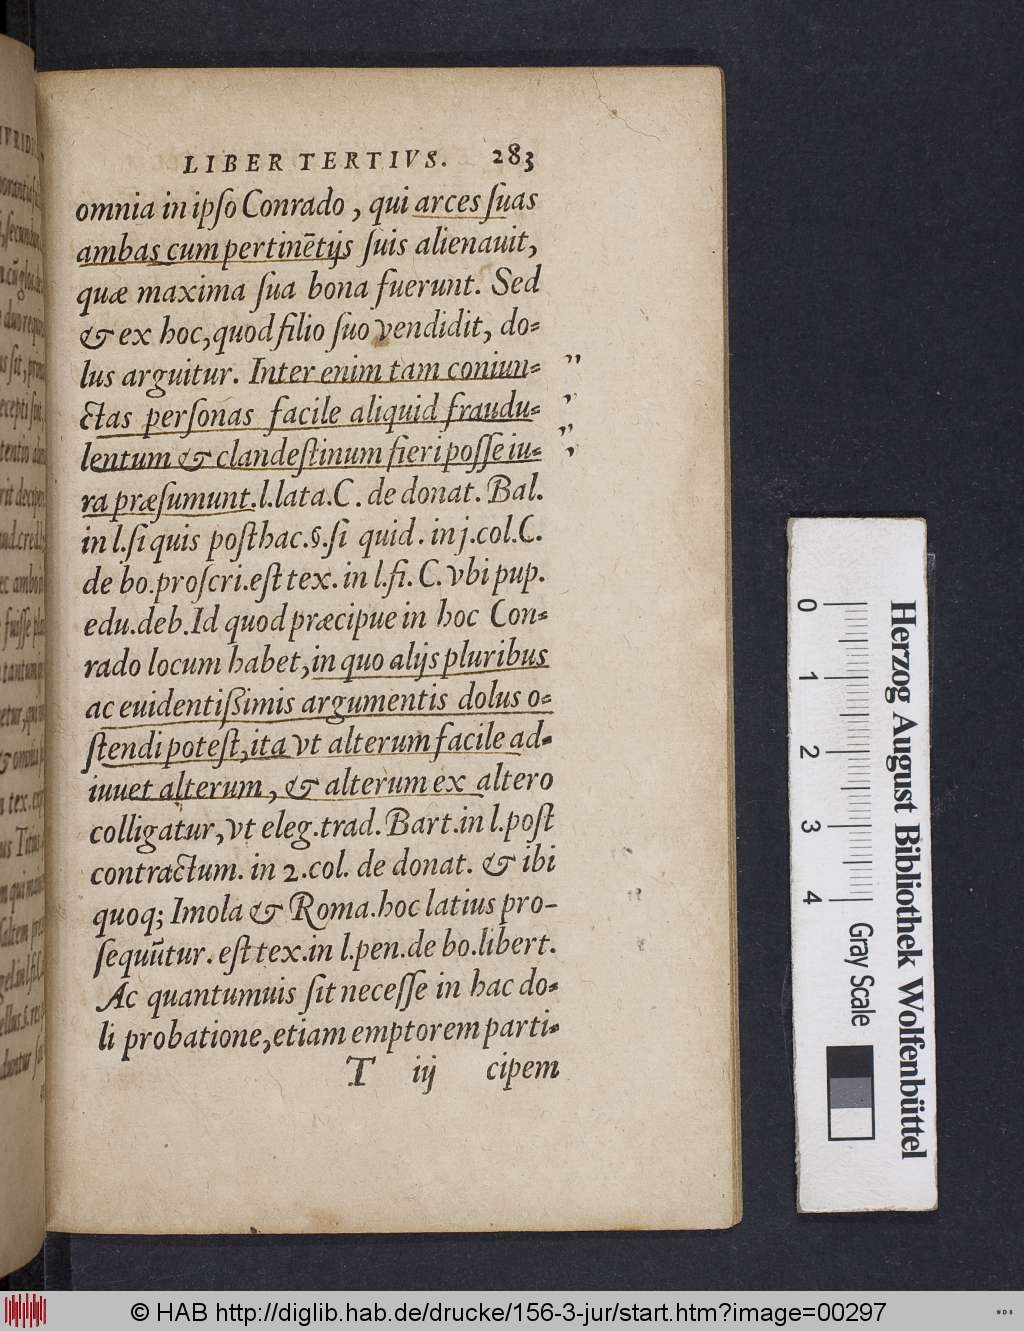 LIBER TERTIVS. 283
omnia in ipſo Conrado, qui arces ſuas
ambas cum pertinētijs ſuis alienauit,
quæ maxima ſua bona fuerunt. Sed
& ex hoc, quod filio ſuo vendidit, do-
lus arguitur. Inter enim tam coniun-
ctas perſonas facile aliquid fraudu-
lentum & clandeſtinum fieri poſſe iu-
ra præſumunt. l. lata. C. de donat. Bal.
in l. ſi quis poſthac. §. ſi quid. in j. col. C.
de bo. proſcri. eſt tex. in l. fi. C. vbi pup.
edu. deb. Id quod præcipue in hoc Con-
rado locum habet, in quo alijs pluribus
ac euidentiſſimis argumentis dolus o-
ſtendi poteſt, ita vt alterum facile ad-
iuuet alterum, & alterum ex altero
colligatur, vt eleg. trad. Bart. in l. poſt
contractum. in 2. col. de donat. & ibi
quoq; Imola & Roma. hoc latius pro-
ſequūtur. eſt tex. in l. pen. de bo. libert.
Ac quantumuis ſit neceſſe in hac do-
li probatione, etiam emptorem parti-
T iij cipem
Herzog August Bibliothek Wolfenbüttel
0 1 2 3 4 Gray Scale
© HAB http://diglib.hab.de/drucke/156-3-jur/start.htm?image=00297